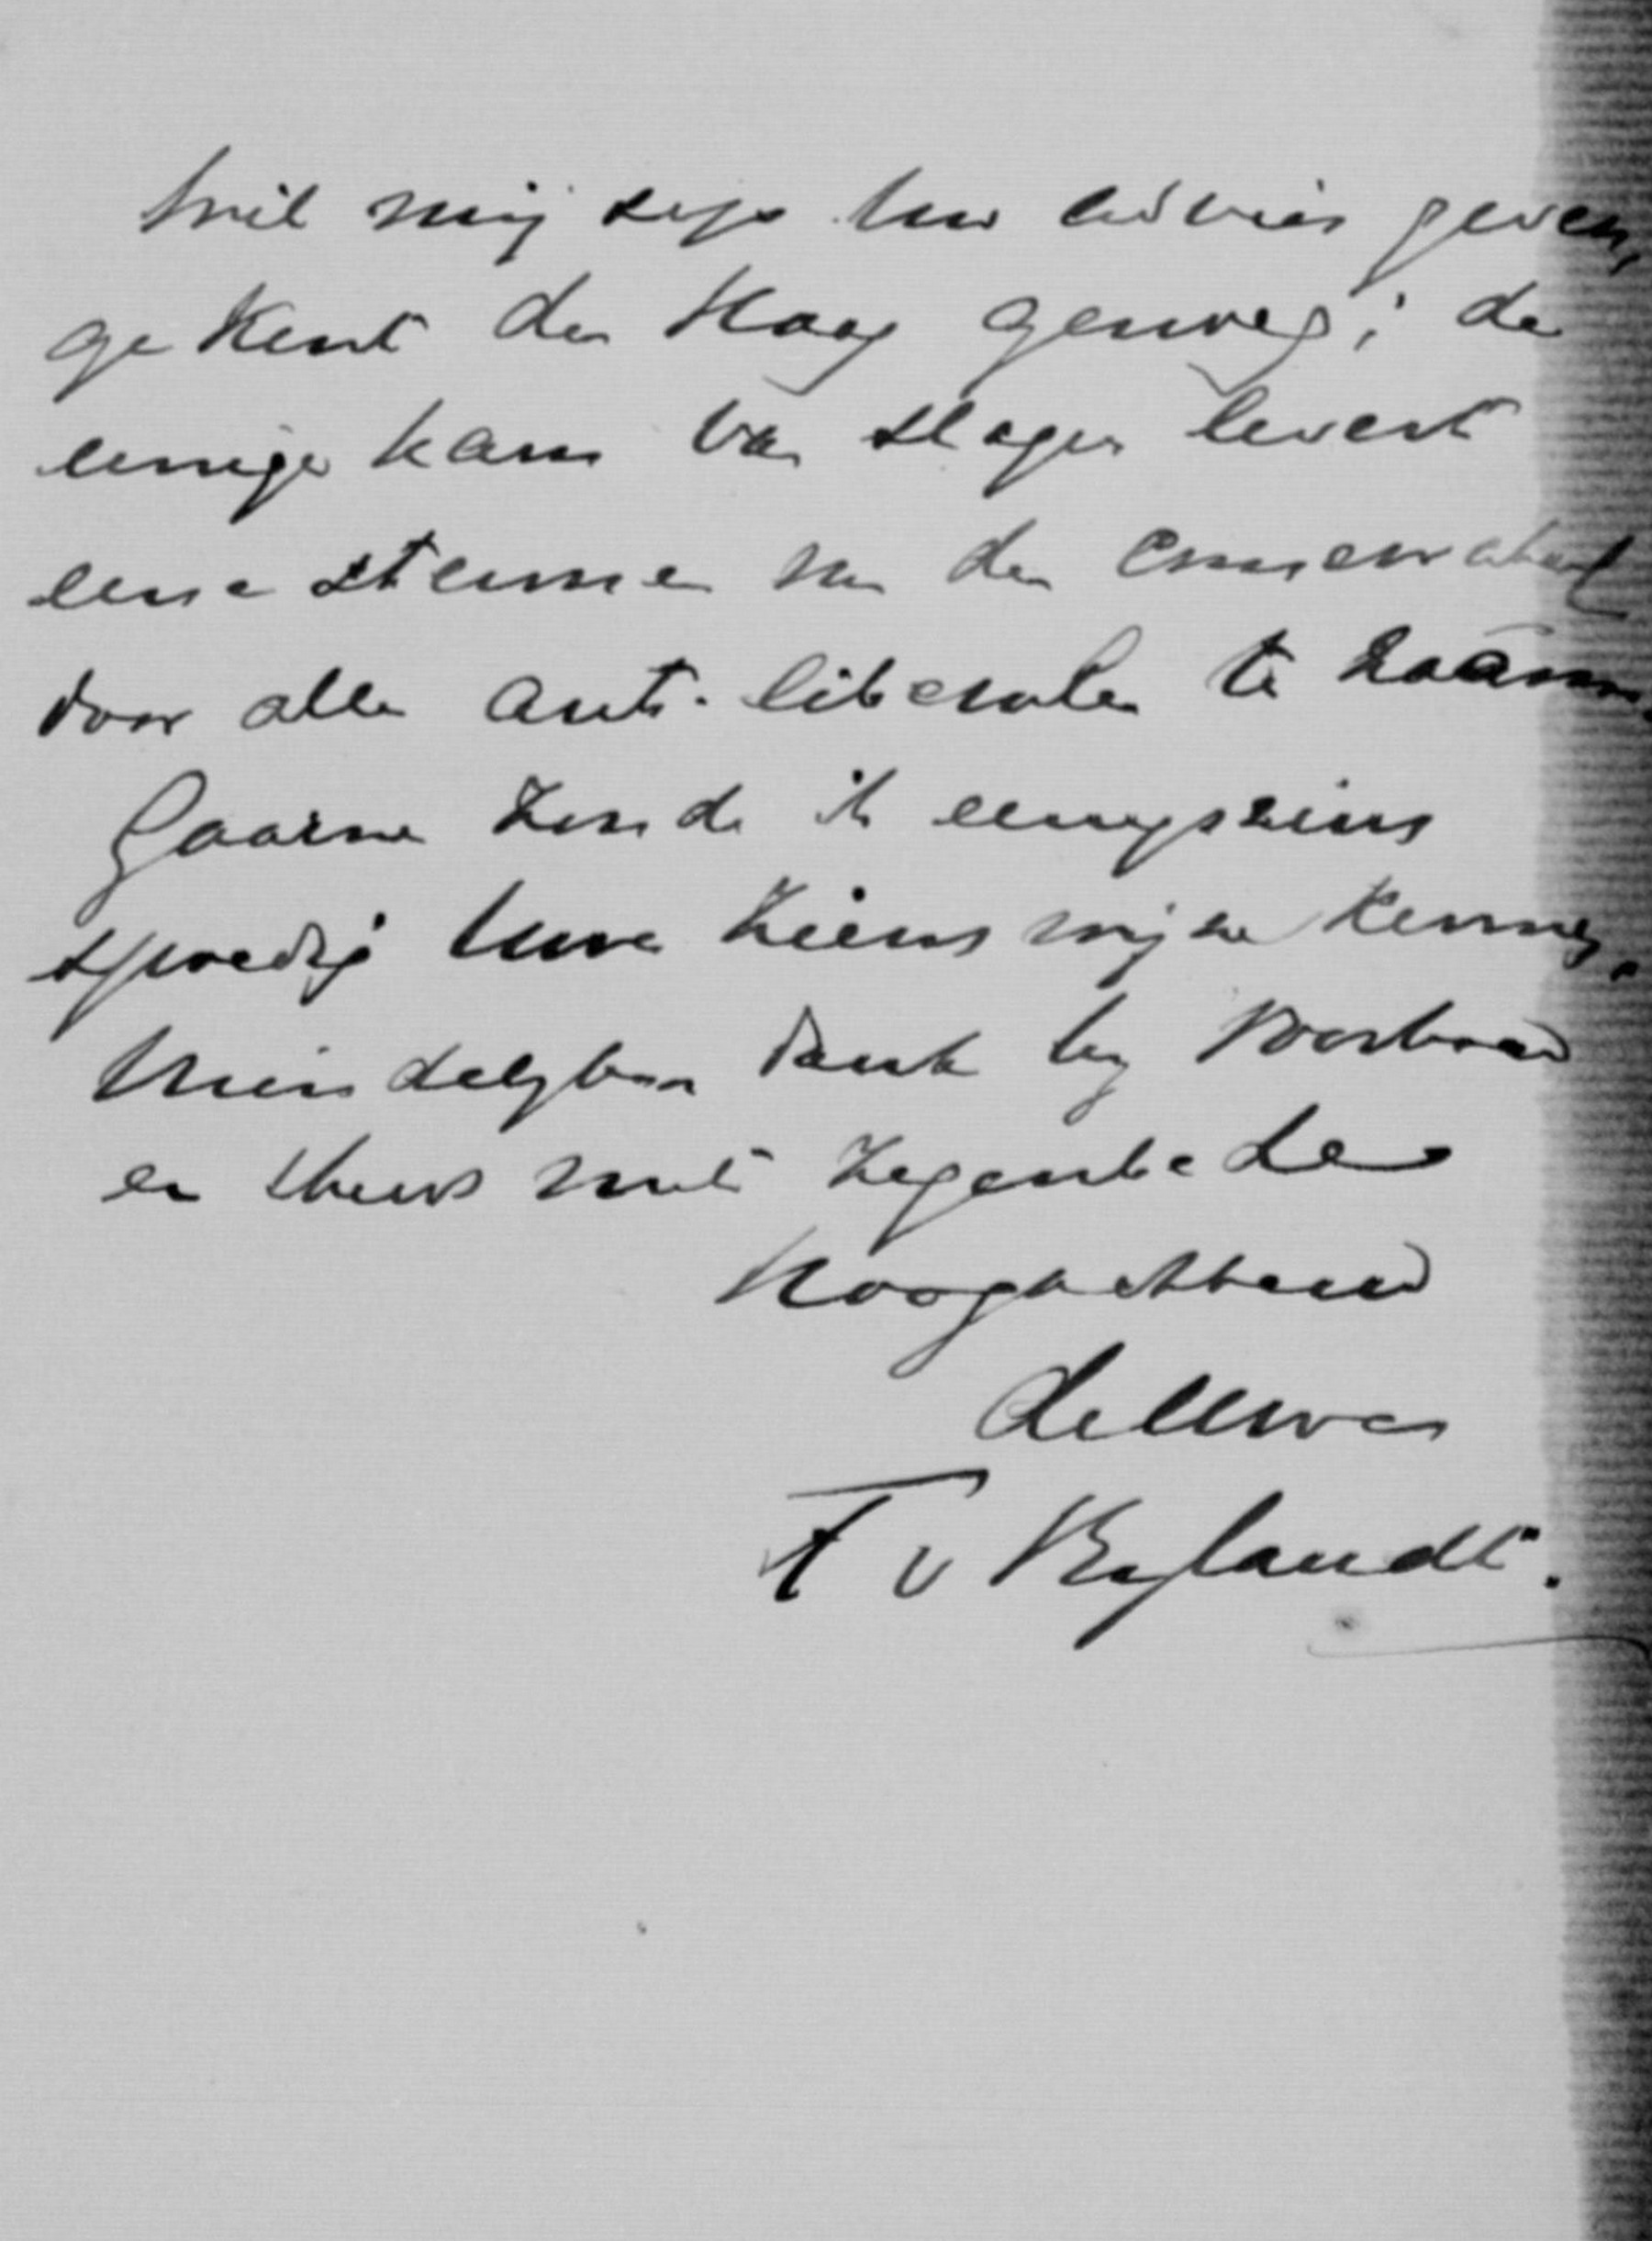 Wil mij dus Uw advies geven,
ge kent den Haag genoeg; de
eenige kans van slagen levert
eene stemme van den
door alle anti-liberalen te zaam.
Gaarne zoude ik eenigszins
spoedig Uwe zienswijze kennen.
Vriendelyken dank by voorbaat
en steeds met zegenbede
Hoogachtend
de Uwe
F v Bylandt.